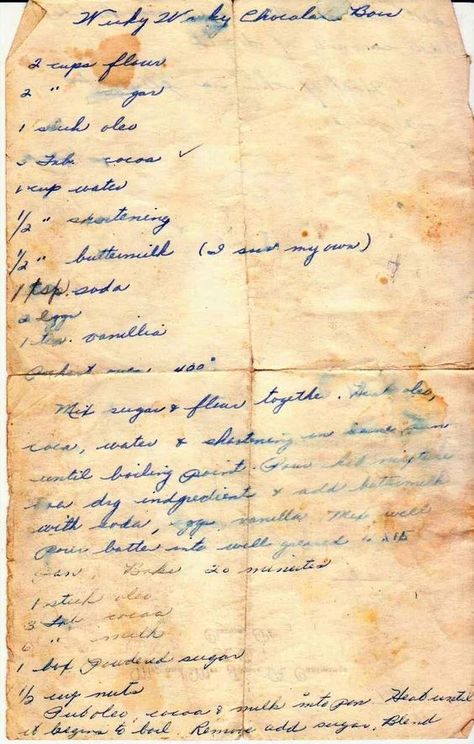 Wicky Wacky Chocolate Bars
2 cups flour
2 " sugar
1 stick oleo
3 Tab. cocoa ✓
1 cup water
1/2 " shortening
1/2 " buttermilk (I sour my own)
1 tsp. soda
2 eggs
1 tea. vanillia
Preheat oven 400°
Mix sugar & flour together. Heat oleo,
coca, water & shortening in sauce pan
until boiling point. Pour hot mixture
dry indgredient & add buttermilk
with soda, eggs, vanilla. Mix well
Pour batter into well greased
pan. Bake 20 minutes
1 stick oleo
3 Tab cocoa
6 " milk
1 box Powdered sugar
1/2 cup nuts
Put oleo, cocoa & milk into pan. Heat until
it begins to boil. Remove add sugar. Blend